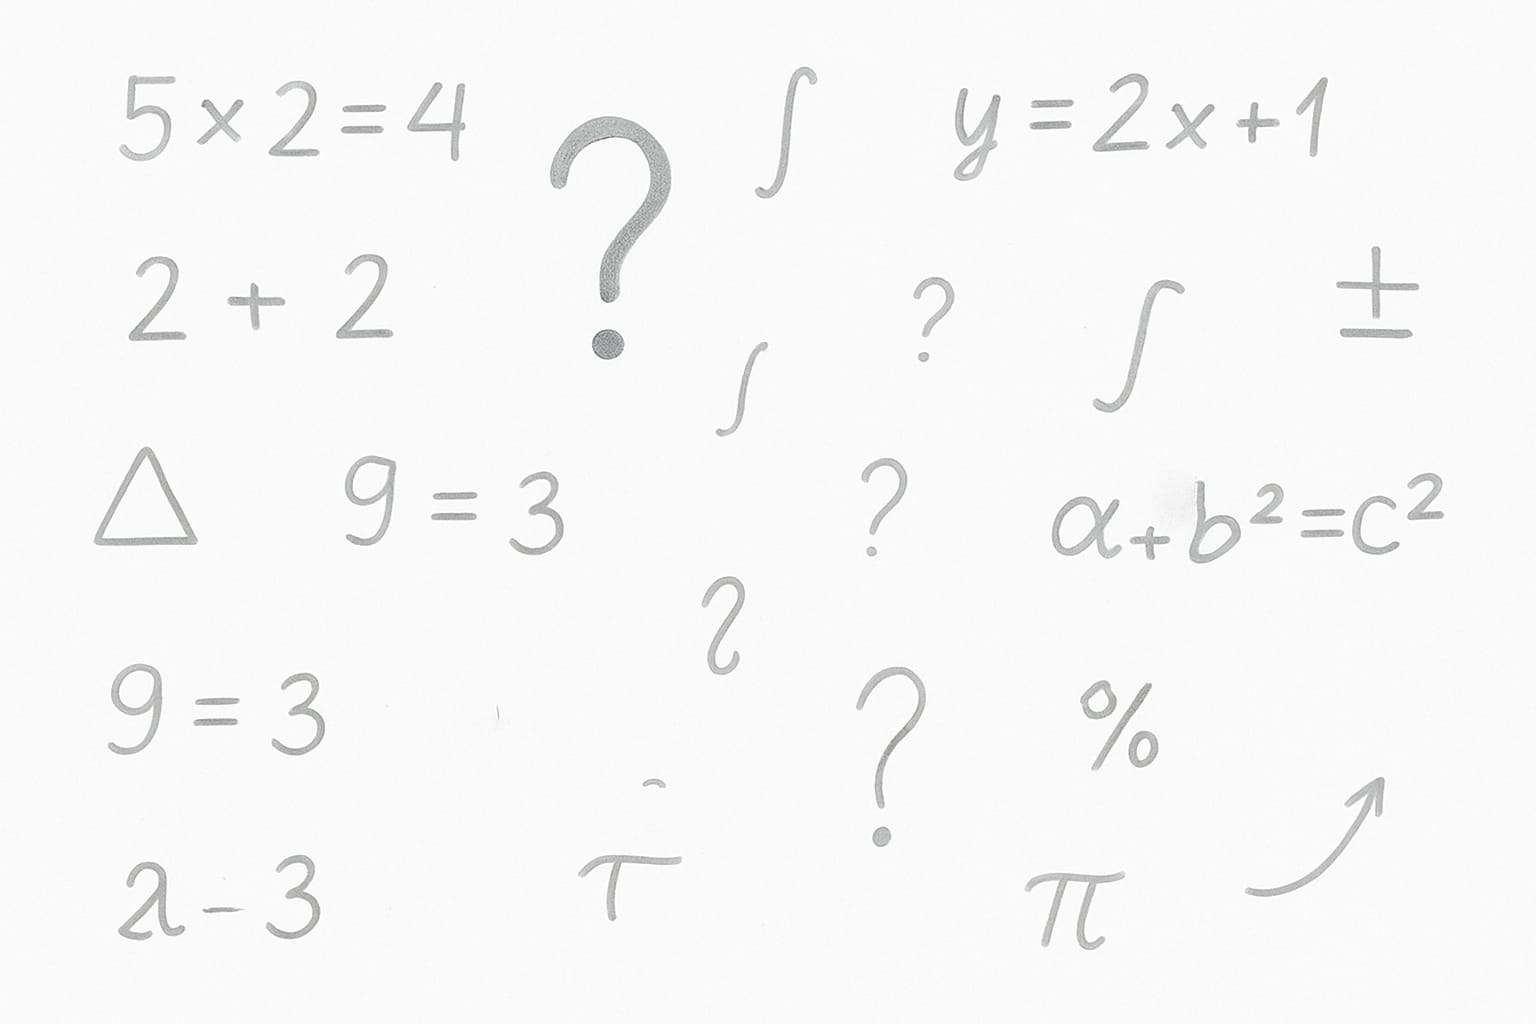 5×2=4
∫
y=2x+1
?
2 + 2
?
∫
±
∫
△
9=3
?
α+b²=c²
9=3
?
%
π